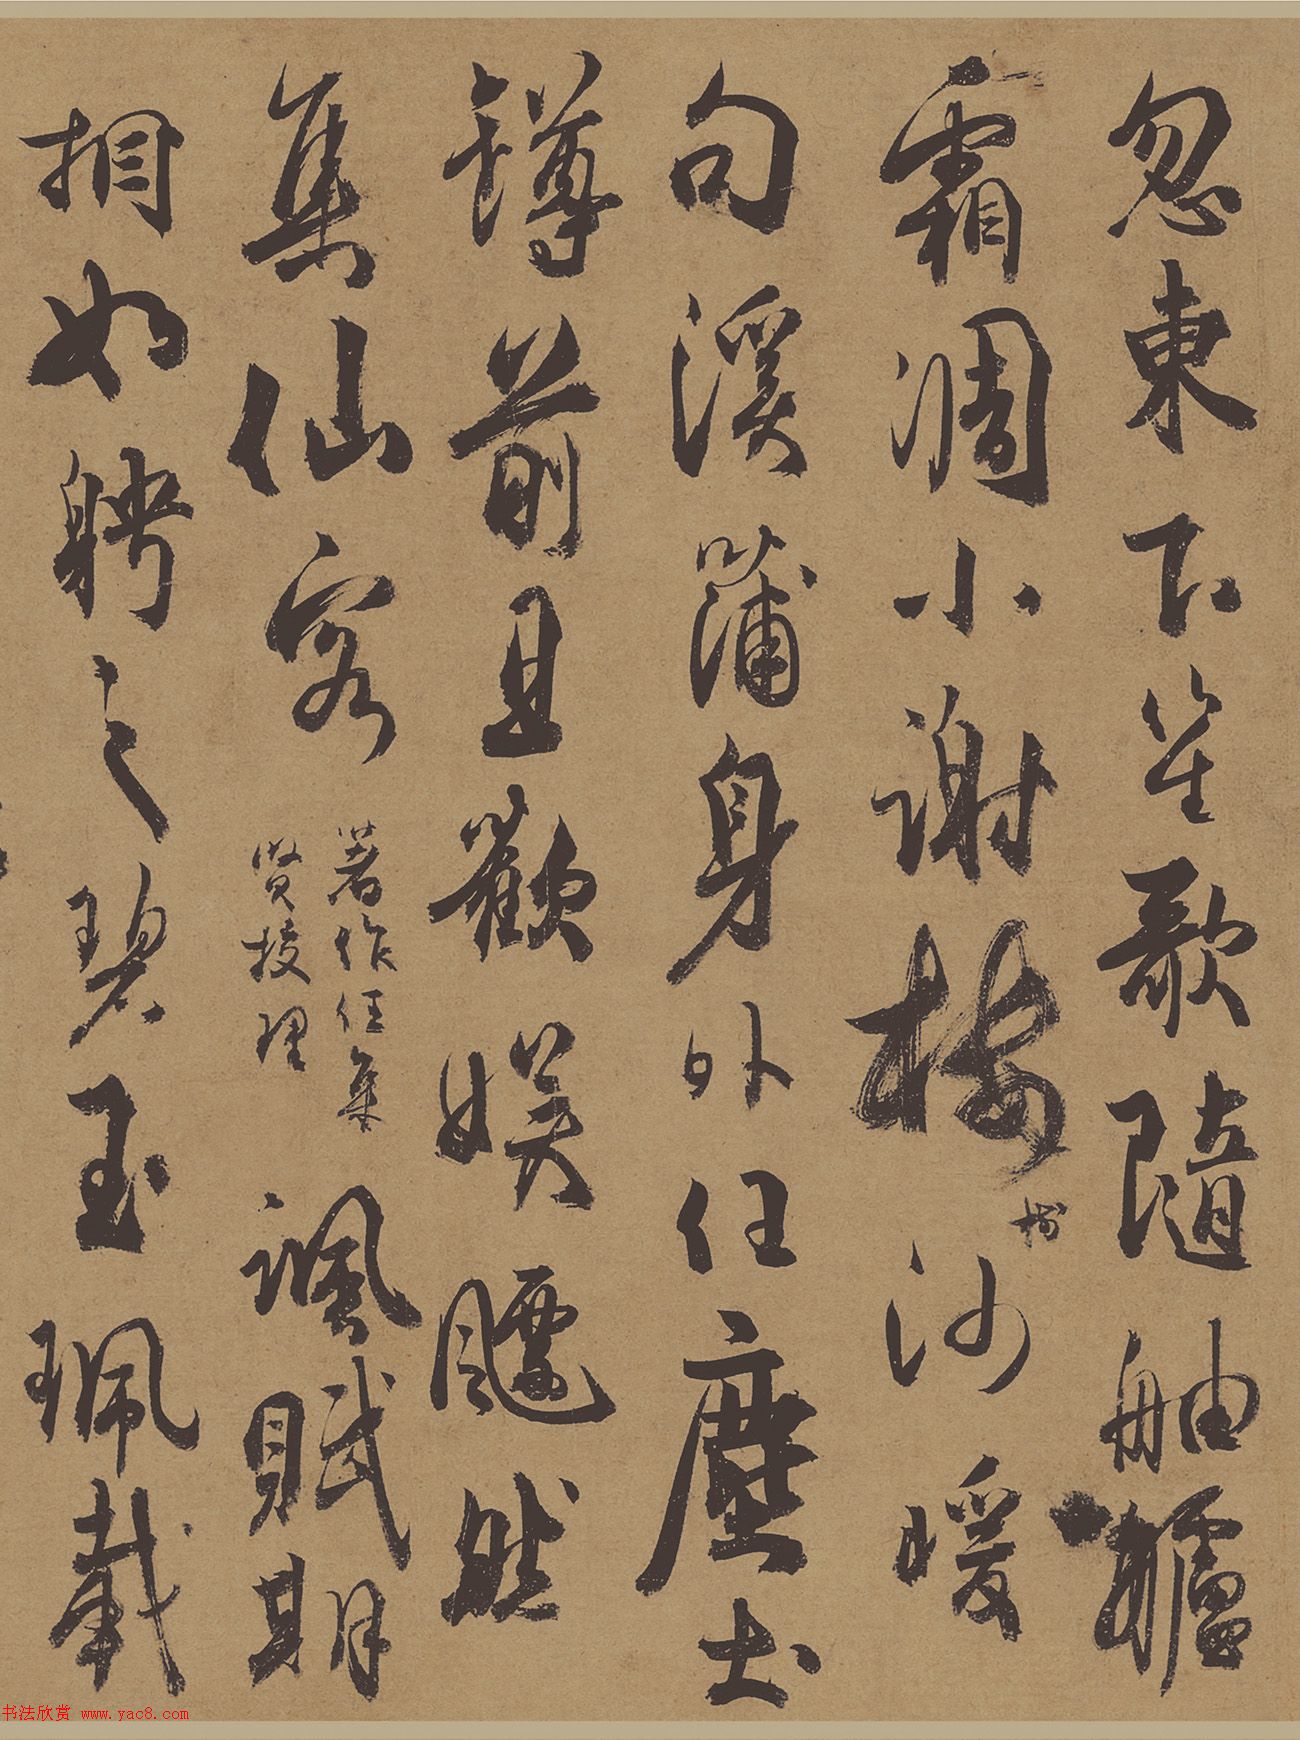 忽東下笙歌隨舳艫
霜凋小謝梅樹沙暖
句溪蒲身外任塵土
罇前且歡娱飃然
集仙客著作任集賢校理諷賦期
相如聘之碧玉珮載
书法欣赏 www.yac8.com